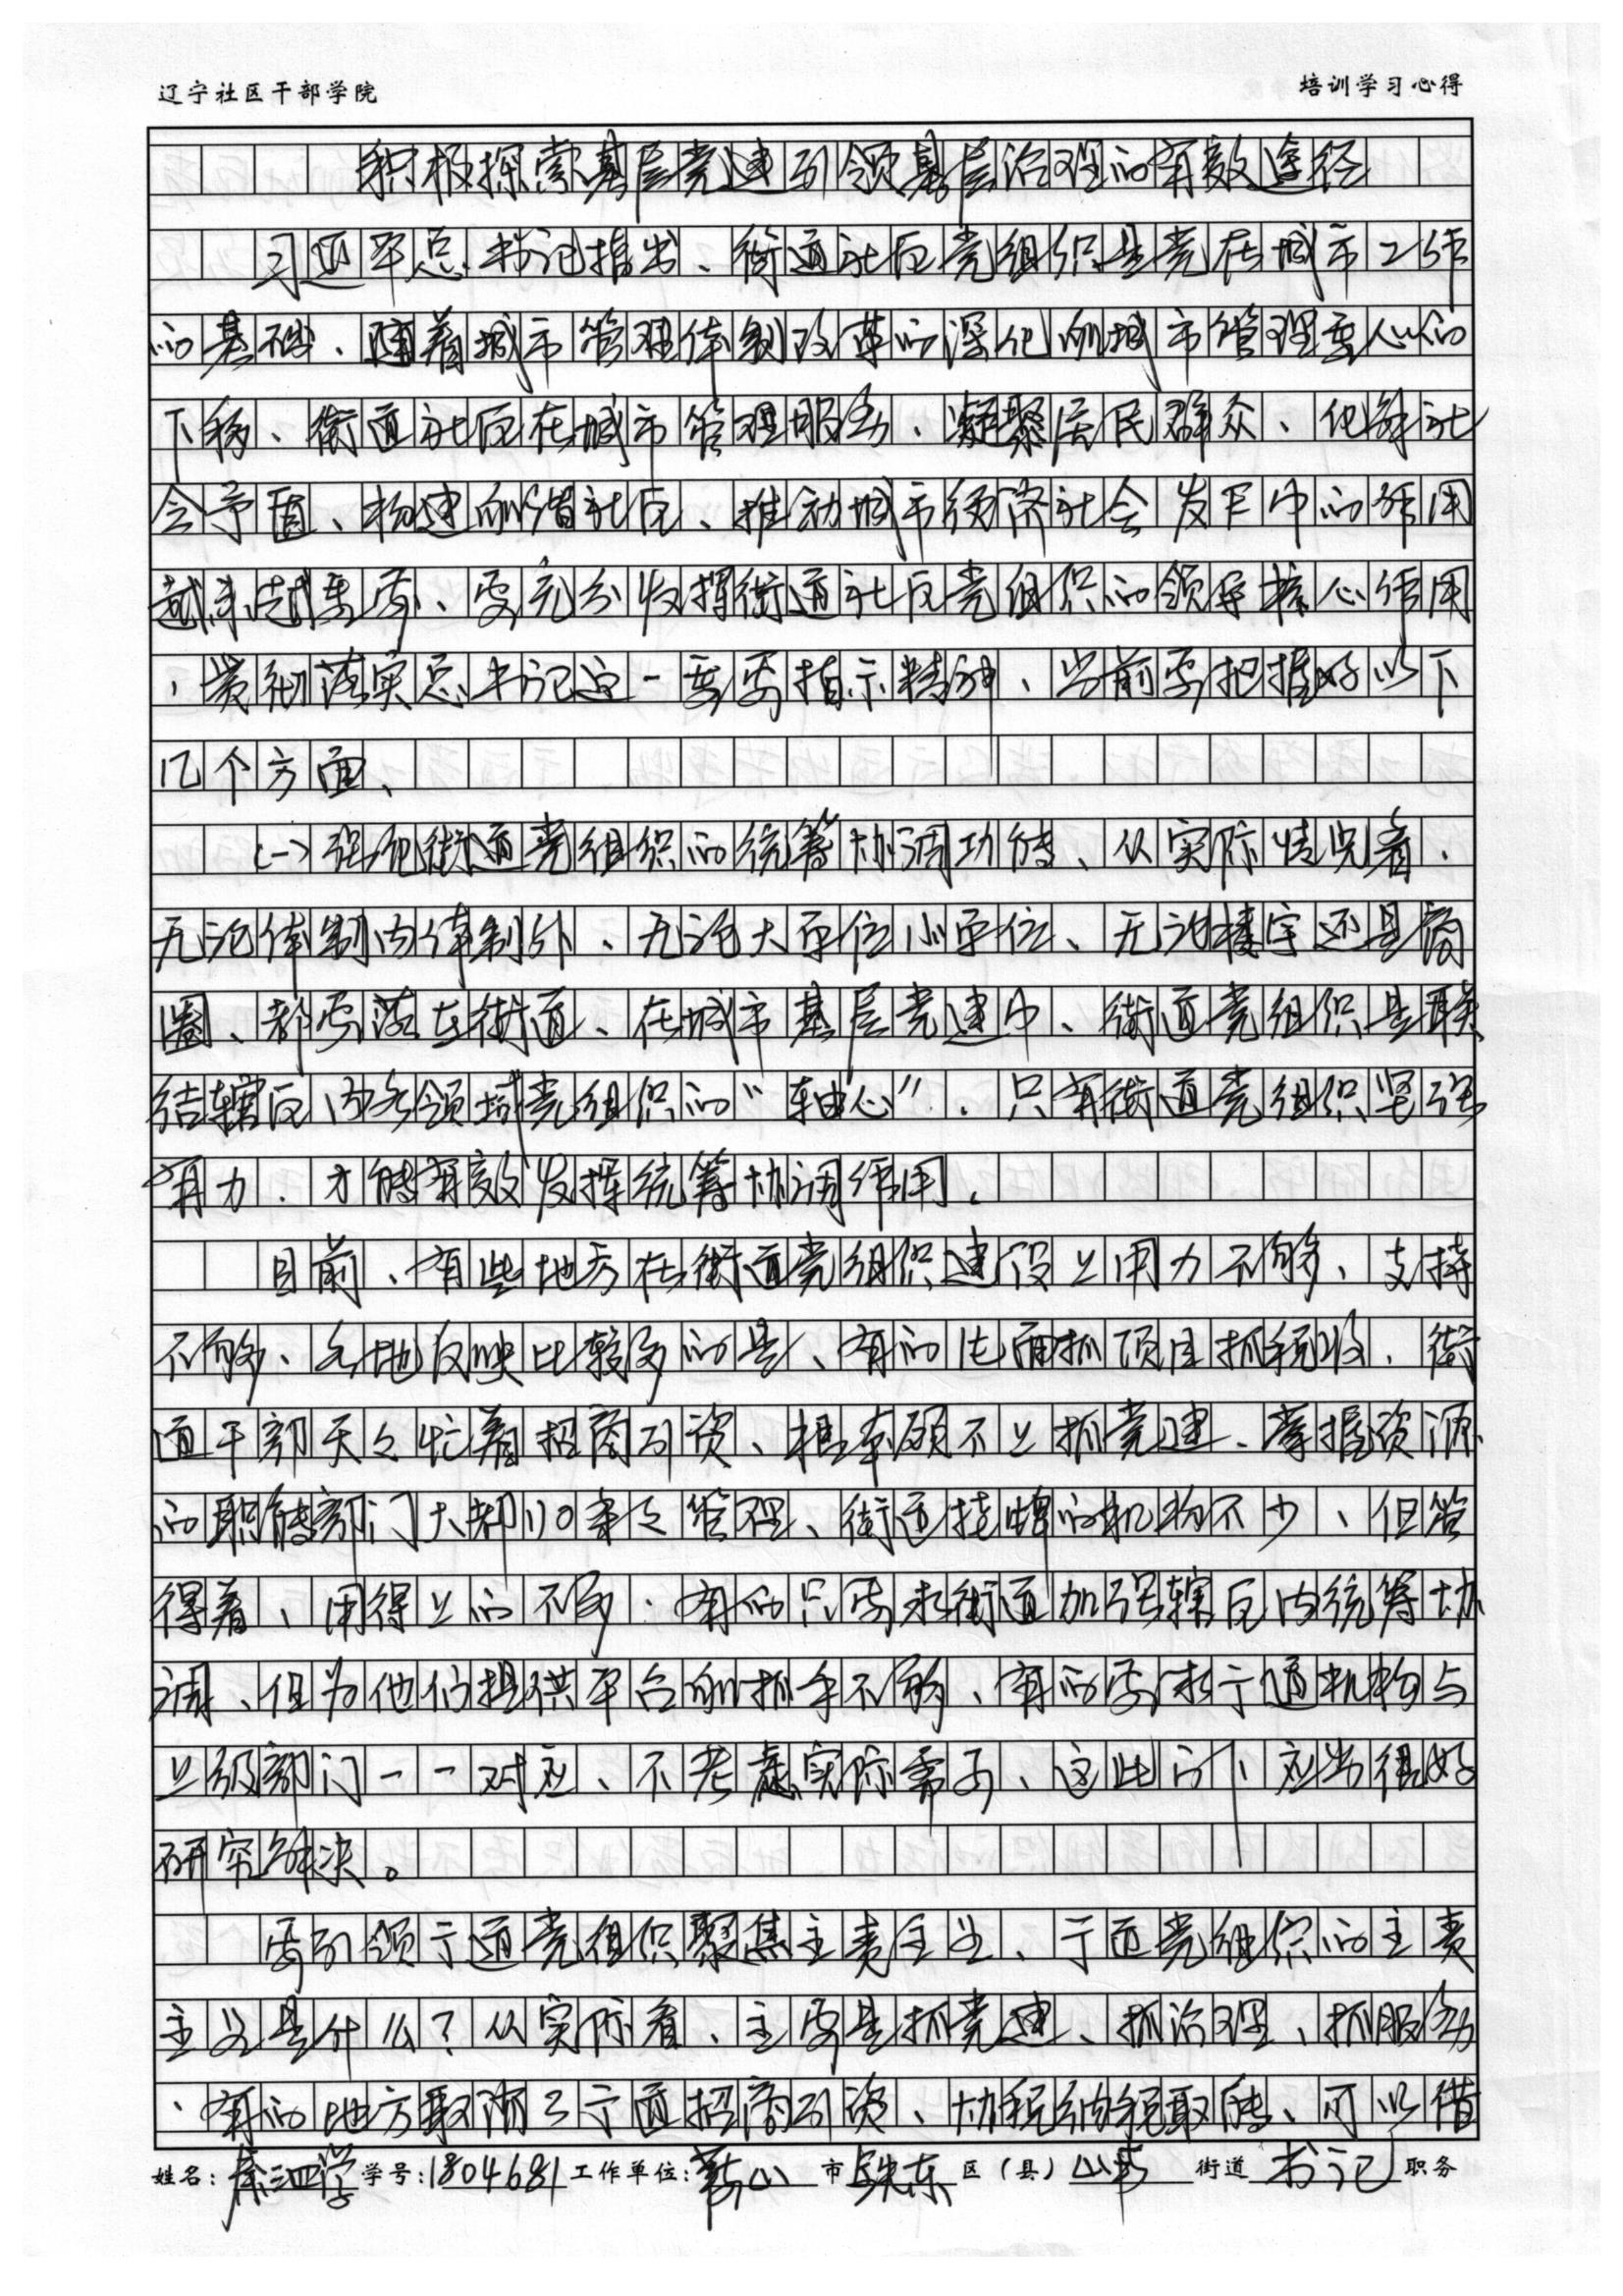 辽宁社区干部学院 培训学习心得
积极探索基层党建引领基层治理的有效途径
习近平总书记指出、街道社区党组织是党在城市工作
的基础、随着城市管理体制改革的深化和城市管理重心的
下移、街道社区在城市管理服务、凝聚居民群众、化解社
会矛盾、构建和谐社区、推动城市经济社会发展中的作用
越来越重要、要充分发挥街道社区党组织的领导核心作用
、贯彻落实总书记这一重要指示精神、当前要把握好以下
几个方面、
(一)强化街道党组织的统筹协调功能、从实际情况看、
无论体制内体制外、无论大单位小单位、无论楼宇还是商
圈、都要落在街道、在城市基层党建中、街道党组织是联
结辖区内各领域党组织的“轴心”、只有街道党组织坚强
有力、才能有效发挥统筹协调作用。
目前、有些地方在街道党组织建设上用力不够、支持
不够、各地反映比较多的是、有的片面抓项目抓税收、街
道干部天天忙着招商引资、根本顾不上抓党建、掌握资源
的职能部门大都以条之管理、街道挂牌的机构不少、但管
得着、用得上的不多、有的只要求街道加强辖区内统筹协
调、但为他们提供平台和抓手不够、有的要求亍道机构与
上级部门一一对应、不考虑实际需要、这些问下应当很好
研究解决。
要引领亍道党组织聚焦主责主业、亍道党组织的主责
主业是什么?从实际看、主要是抓党建、抓治理、抓服务
、有的地方取消了亍道招商引资、协税纳税职能、可以借
姓名: 学号:1804681 工作单位:鞍山 市 铁东 区(县) 街道 书记 职务